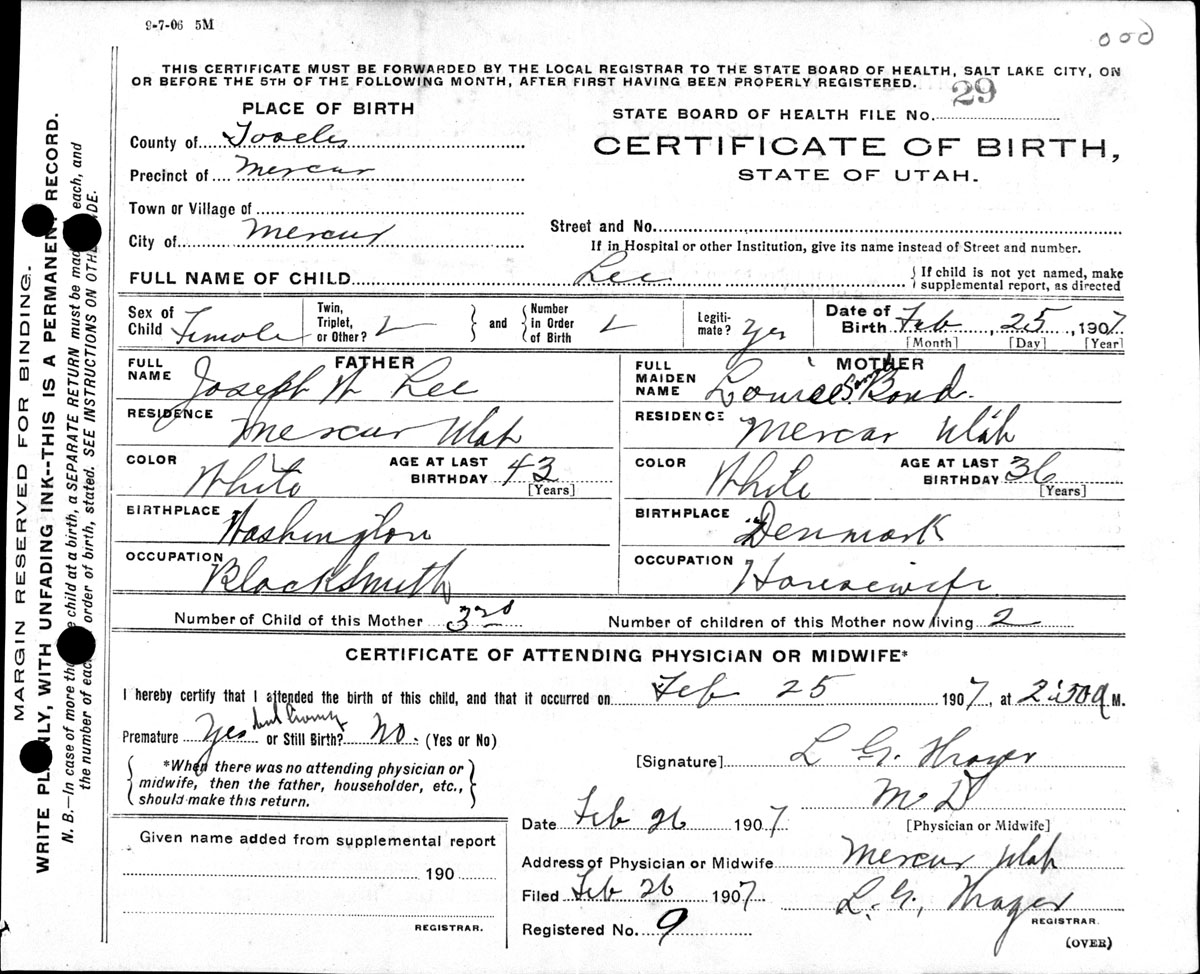 9-7-06 5M
000
THIS CERTIFICATE MUST BE FORWARDED BY THE LOCAL REGISTRAR TO THE STATE BOARD OF HEALTH, SALT LAKE CITY, ON
OR BEFORE THE 5TH OF THE FOLLOWING MONTH, AFTER FIRST HAVING BEEN PROPERLY REGISTERED.
PLACE OF BIRTH
STATE BOARD OF HEALTH FILE No. 29
County of Tooele
CERTIFICATE OF BIRTH,
Precinct of Mercur
STATE OF UTAH.
Town or Village of
Street and No.
City of Mercur
If in Hospital or other Institution, give its name instead of Street and number.
FULL NAME OF CHILD Lee
{ If child is not yet named, make
supplemental report, as directed
Sex of Child Female
Twin, Triplet, or Other?
and
Number in Order of Birth
Legiti-mate? Yes
Date of Birth Feb, 25, 1907
[Month] [Day] [Year]
FATHER
FULL NAME Joseph W Lee
RESIDENCE Mercur Utah
COLOR White
AGE AT LAST BIRTHDAY 43
[Years]
BIRTHPLACE Washington
OCCUPATION Blacksmith
MOTHER
FULL MAIDEN NAME Bond.
RESIDENCE Mercur Utah
COLOR White
AGE AT LAST BIRTHDAY 36
[Years]
BIRTHPLACE Denmark
OCCUPATION Housewife
Number of Child of this Mother 3rd
Number of children of this Mother now living 2
CERTIFICATE OF ATTENDING PHYSICIAN OR MIDWIFE*
I hereby certify that I attended the birth of this child, and that it occurred on Feb 25 1907, at 2:50 a M.
Premature Yes or Still Birth? No. (Yes or No)
*When there was no attending physician or
midwife, then the father, householder, etc.,
should make this return.
[Signature] L G Thrayer
M D
[Physician or Midwife]
Date Feb 26 1907
Address of Physician or Midwife Mercur Utah
Filed Feb 26 1907
L. G. Thrayer
REGISTRAR.
Registered No. 9
(OVER)
Given name added from supplemental report
190
REGISTRAR.
MARGIN RESERVED FOR BINDING.
WRITE PLAINLY, WITH UNFADING INK--THIS IS A PERMANENT RECORD.
N. B.—In case of more child at a birth, a SEPARATE RETURN must be each, and
the number of order of birth, stated. SEE INSTRUCTIONS ON